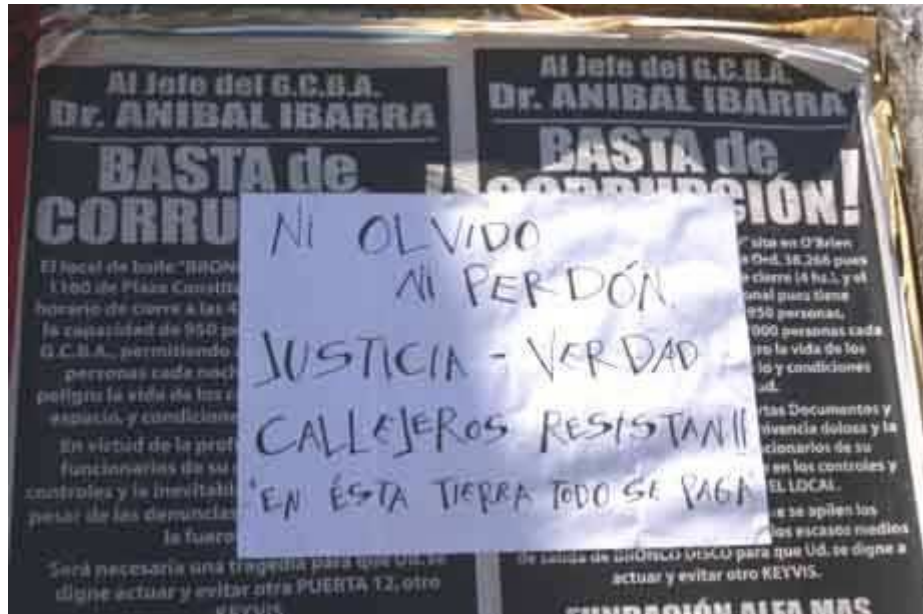 Al Jefe del G.C.B.A.
Dr. ANIBAL IBARRA
BASTA de
El local de baile "BRON
1160 de Plaza
horario de cierre a las 4
la capacidad de 950
G.C.B.A., permitiendo
personas cada
peligro la vida de los
espacio, y
En virtud de la
funcionarios de su
controles y la
pesar de las
la
Será necesaria una tragedia para que Ud. se
digne actuar y evitar otra PUERTA 12, otro
KEYVIS.
Al Jefe del G.C.B.A.
Dr. ANIBAL IBARRA
BASTA de
sito en O'Brien
Ord. 38.266 pues
cierre (4 hs.), y el
pues tiene
950 personas,
000 personas cada
la vida de los
y condiciones
Documentos y
dolosa y la
de su
en los controles y
EL LOCAL.
se apilen los
los escasos medios
de salida de BRONCO DISCO para que Ud. se digne a
actuar y evitar otro KEYVIS.
FUNDACIÓN ALFA MAS
NI OLVIDO
NI PERDÓN.
JUSTICIA - VERDAD
CALLEJEROS RESISTAN!!
"EN ÉSTA TIERRA TODO SE PAGA"